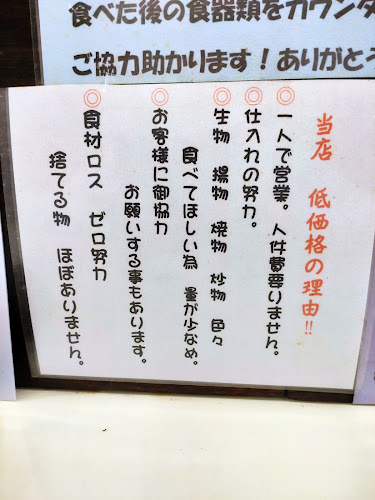 食べた後の食器類をカウンタ
ご協力助かります！ありがとう
当店 低価格の理由!!
◎一人で営業。人件費要りません。
◎仕入れの努力。
◎生物 揚物 焼物 炒物 色々
食べてほしい為 量が少なめ。
◎お客様に御協力
お願いする事もあります。
◎食材ロス ゼロ努力
捨てる物 ほぼありません。